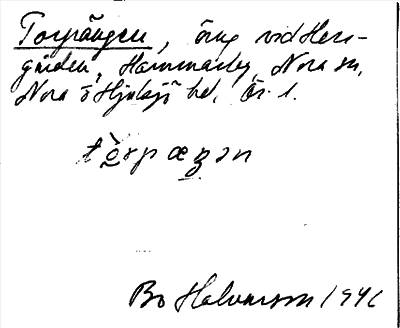 Torpängen, äng vid Herr-
gården, Hammarby, Nora sn,
Nora o Hjulsjö hd, Ör. l.
Bo Halvarson 1946